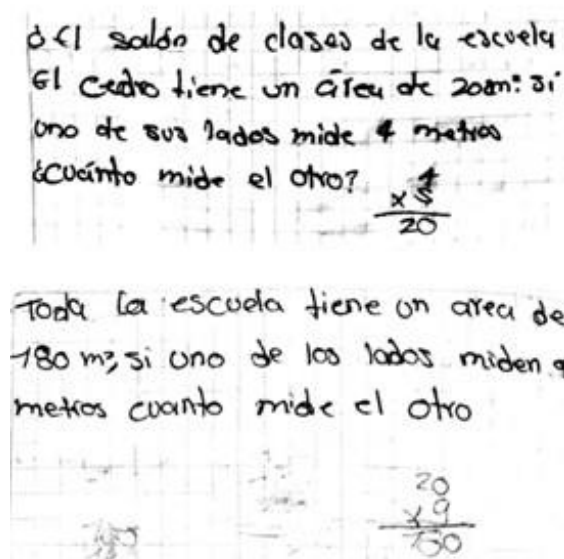 El salón de clases de la escuela
El Cedro tiene un área de 20m². si
uno de sus lados mide 4 metros
¿cuánto mide el otro?
4
x 5
20
Toda la escuela tiene un area de
180 m², si uno de los lados miden 9
metros cuanto mide el otro
20
x 9
180